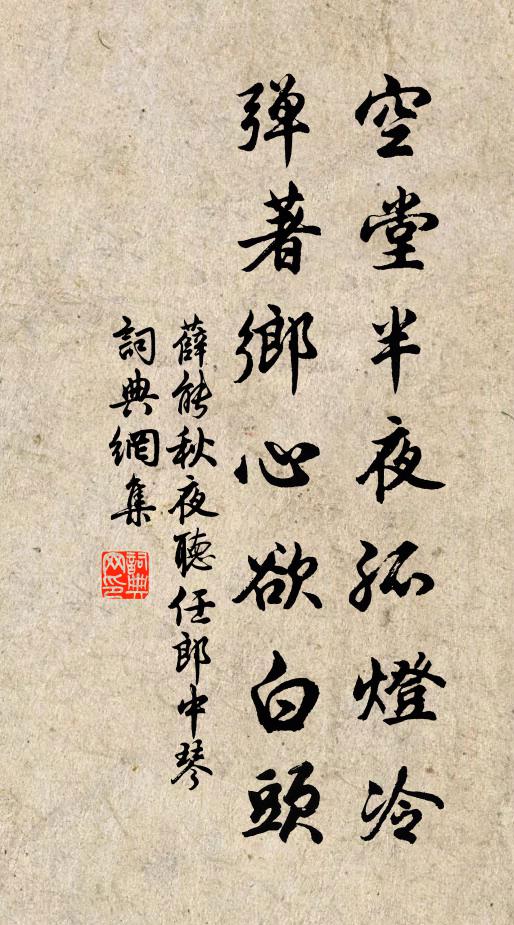 空堂半夜孤燈冷
弹著鄉心欲白頭
薛能秋夜聽任郎中琴
詞典網集
詞典网印